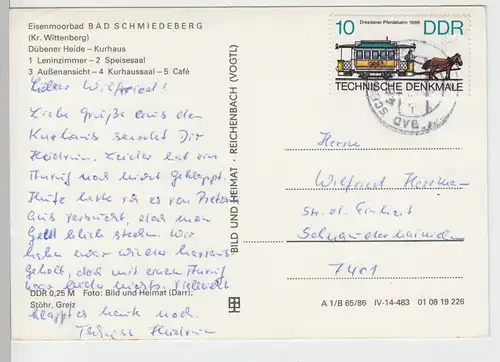 Eisenmoorbad BAD SCHMIEDEBERG
(Kr. Wittenberg)
Dübener Heide – Kurhaus
1 Leninzimmer – 2 Speisesaal
3 Außenansicht – 4 Kurhaussaal – 5 Café
Lieber Wilfried!
Liebe Grüße aus dem
Kurhaus sendet Dir
Heidrun. Leider hat ein
Anruf noch nicht geklappt.
Heute habe ich es von Pretzsch
aus versucht, das man
Geld blieb stecken. Wir
haben zwar wieder
gehabt, das mit einem Anruf
nichts. Vielleicht
klappt es heute noch.
Tschüss Heidrun
DDR 0,25 M Foto: Bild und Heimat (Darr);
Stöhr, Greiz
BILD UND HEIMAT · REICHENBACH (VOGTL)
10 Dresdener Pferdebahn 1886 DDR
TECHNISCHE DENKMALE
BAD SC
Herrn
Wilfried
Str. d. Einheit
7401
A 1/B 65/86 IV-14-483 01 08 19 226